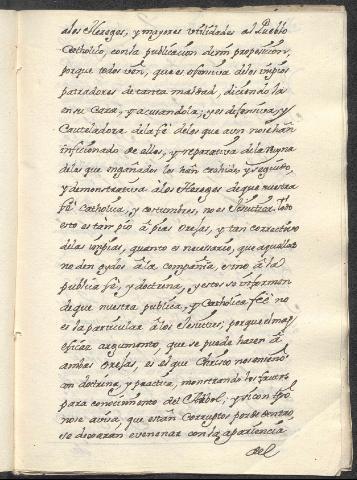 alos Hereges, y mayores utilidades al Pueblo
Catholico, con la publicacion de mi proposicion,
porque todos ven, que es ofensiva de los impios
patradores de tanta maldad, diciendo la
en su Cara, y acusandola; y es defensiva, y
Cauteladora de la fè de los que aun no se han
inficionado de ellos, y reparativa de la Ruyna
de los que engañados los han crehido, y seguido,
y demonstrativa à los Hereges de que nuestra
fè Catholica, y costumbres, no es Jesuitica. Todo
esto es tan pio à pias Orejas, y tan correctivo
de las impias, quanto es necessario, que aquellas
no den oydos à la compañia, sino à la
publica fè, y doctrina, y estas se informen
de que nuestra publica, y Catholica feè no
es la particular à los Jesuitas; porque el mas
eficaz argumento, que se puede hazer à
ambas Orejas, es el que Christo nos enseñò
con doctrina, y practica, monstrando los frutos
para conocimiento del Arbol; y si con tpo.
no se avisa, que estàn Corruptos por de dentro,
se dexaràn evenenar con la apariencia
del